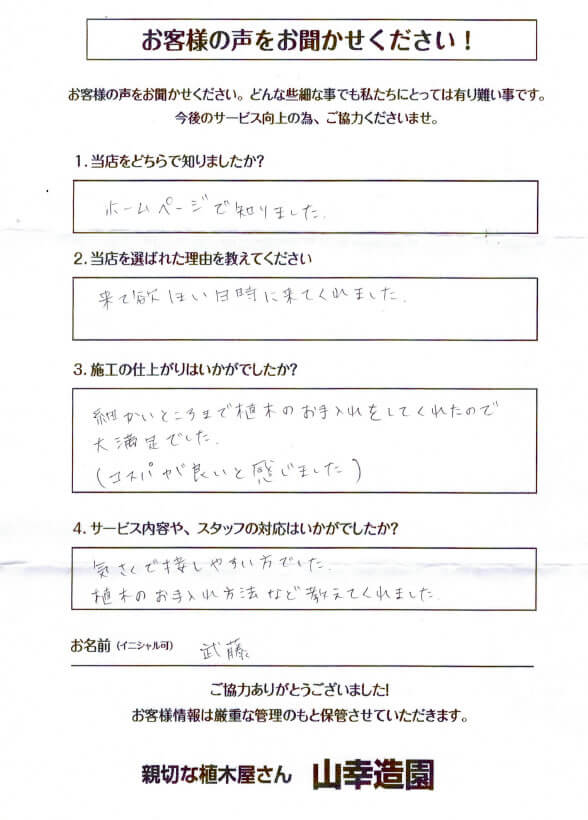 お客様の声をお聞かせください！
お客様の声をお聞かせください。どんな些細な事でも私たちにとっては有り難い事です。
今後のサービス向上の為、ご協力くださいませ。
1.当店をどちらで知りましたか?
ホームページで知りました.
2.当店を選ばれた理由を教えてください
来て欲しい日時に来てくれました.
3.施工の仕上がりはいかがでしたか?
細かいところまで植木のお手入れをしてくれたので
大満足でした.
(コスパが良いと感じました)
4.サービス内容や、スタッフの対応はいかがでしたか?
気さくで接しやすい方でした.
植木のお手入れ方法など教えてくれました.
お名前(イニシャル可) 武藤
ご協力ありがとうございました!
お客様情報は厳重な管理のもと保管させていただきます。
親切な植木屋さん 山幸造園